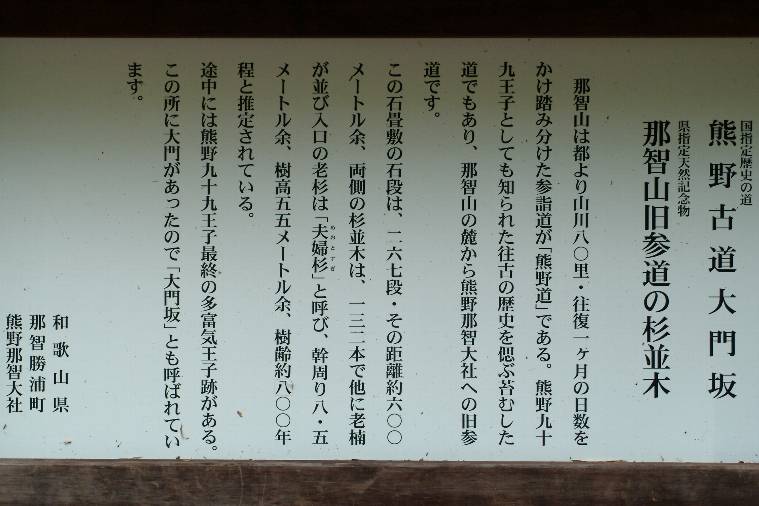 国指定歴史の道
熊野古道大門坂
県指定天然記念物
那智山旧参道の杉並木
那智山は都より山川八〇里・往復一ヶ月の日数を
かけ踏み分けた参詣道が「熊野道」である。熊野九十
九王子としても知られた往古の歴史を偲ぶ苔むした
道でもあり、那智山の麓から熊野那智大社への旧参
道です。
この石畳敷の石段は、二六七段・その距離約六〇〇
メートル余、両側の杉並木は、一三二本で他に老楠
が並び入口の老杉は「夫婦杉」と呼び、幹周り八・五
めおとすぎ
メートル余、樹高五五メートル余、樹齢約八〇〇年
程と推定されている。
途中には熊野九十九王子最終の多富気王子跡がある。
この所に大門があったので「大門坂」とも呼ばれてい
ます。
和歌山県
那智勝浦町
熊野那智大社